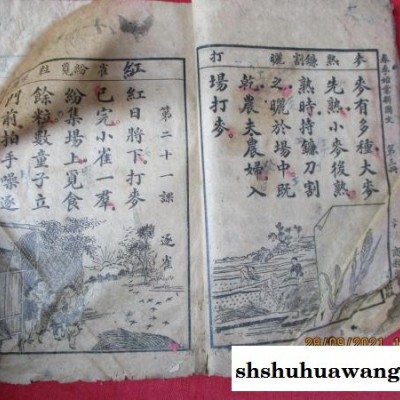 春季始業新國文
麥熟鐮割曬打
麥有多種大麥
先熟小麥後熟
熟時持鐮刀割
之曬於場中既
乾農夫農婦入
場打麥
紅雀紛覓
第二十一課 逐雀
紅日將下打麥
已完小雀一羣
紛集場上覓食
餘粒數童子立
門前拍手噪逐
29/09/2021
shshuhuawang